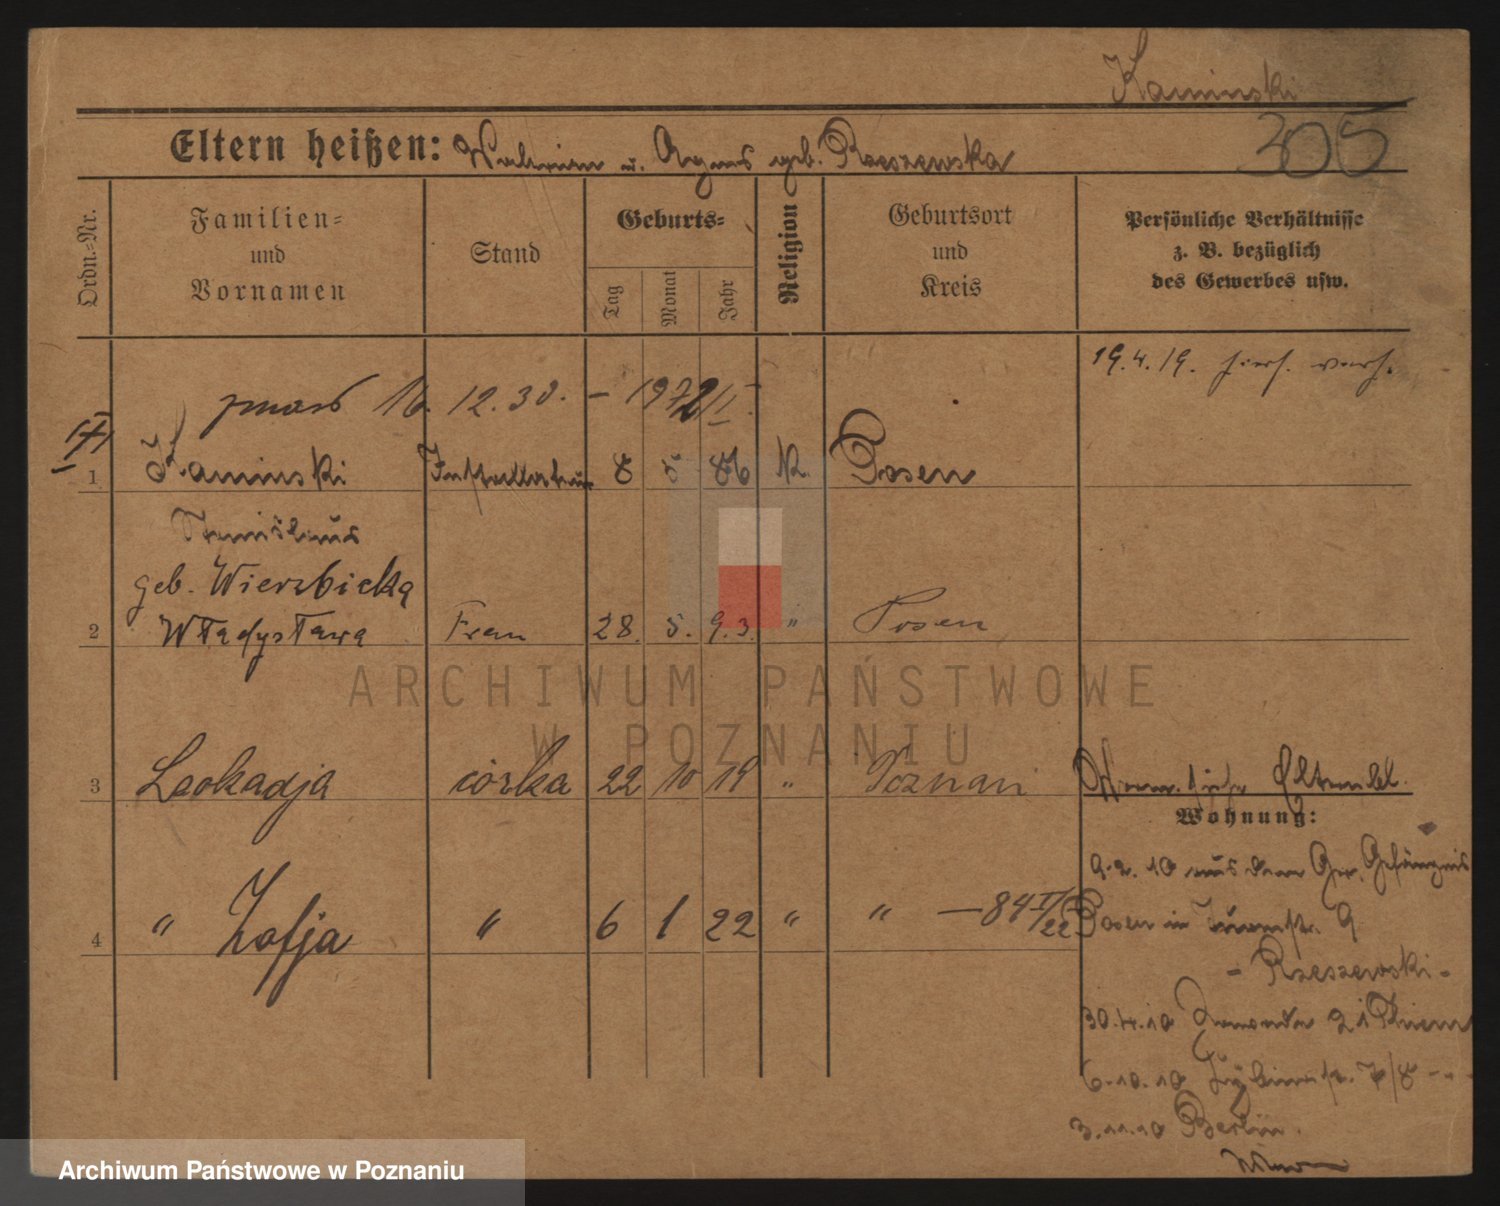 Kaminski
305
Eltern heißen: Valerian u. Agnes geb. Rzeszewska
Ordn.=Nr.
Familien=
und
Vornamen
Stand
Geburts=
Tag
Monat
Jahr
Religion
Geburtsort
und
Kreis
Persönliche Verhältnisse
z. B. bezüglich
des Gewerbes usw.
19.4.19. hies. verh.
zmarł 16. 12. 30.
1 Kaminski Installateur 8 5 86 K Posen
Stanislaus
geb. Wierzbicka
2 Władysława Frau 28. 5. 93. " Posen
3 Leokadja córka 22 10 19 " Poznań
Wohnung:
4 " Zofja " 6 1 22 " " — 84 I/22
9.2.10 aus dem Ger. Gefängnis
Posen in 9
- Rzeszewski -
30.4.10
6.10.10 7/8
3.11.10 Berlin.
ARCHIWUM PAŃSTWOWE
W POZNANIU
Archiwum Państwowe w Poznaniu